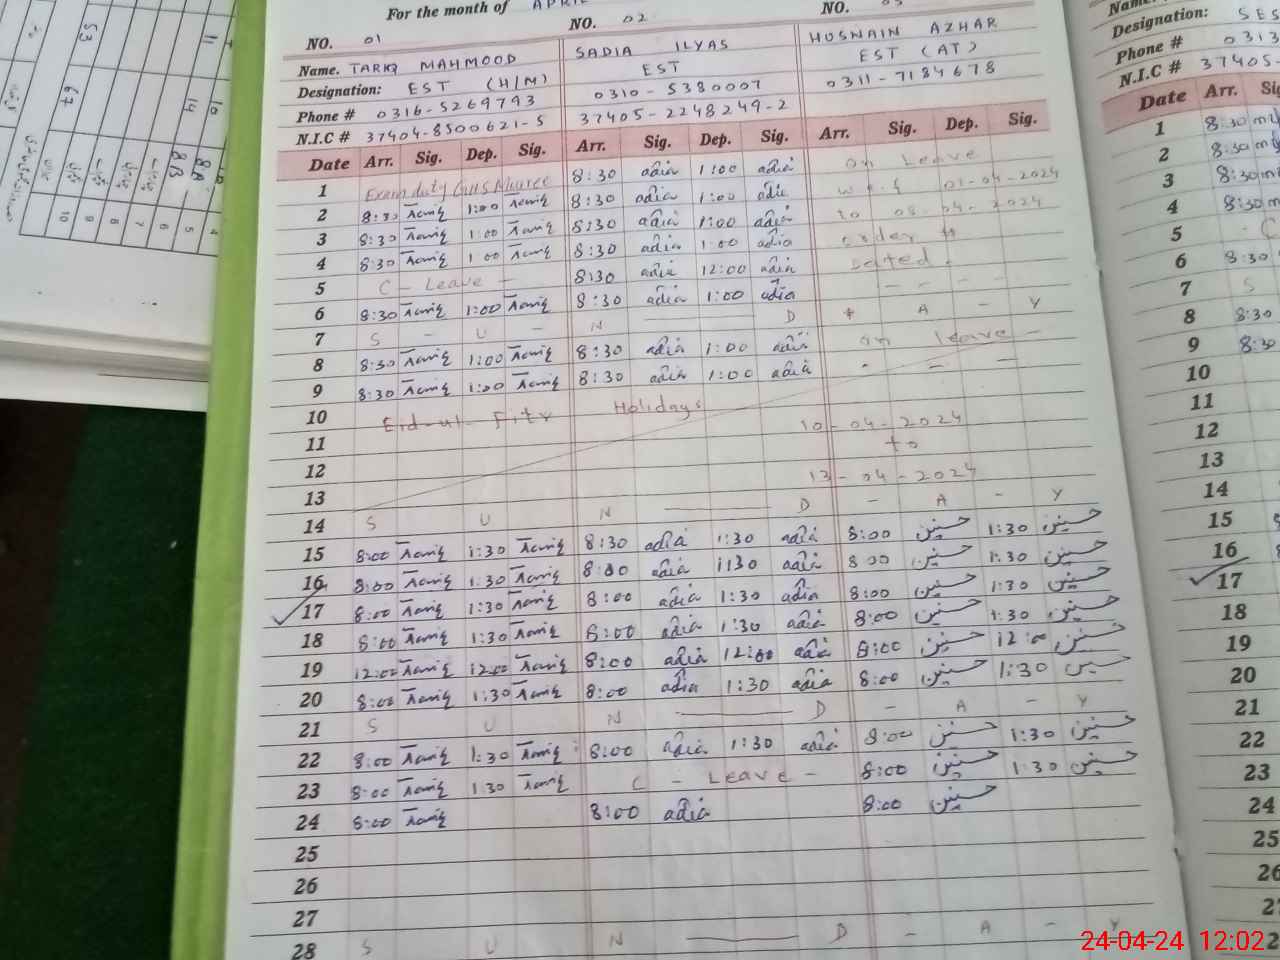 For the month of APRIL
NO. 01 NO. 02 NO. 03
Name. TARIQ MAHMOOD SADIA ILYAS HUSNAIN AZHAR
Designation: EST (H/M) EST EST (AT)
Phone # 0316-5269793 0310-5380007 0311-7184678
N.I.C # 37404-8500621-5 37405-2248249-2
Date Arr. Sig. Dep. Sig. Arr. Sig. Dep. Sig. Arr. Sig. Dep. Sig.
1 Exam duty 8:30 adia 1:00 adia on Leave
2 8:30 Tariq 1:00 Tariq 8:30 adia 1:00 adia w.e.f 01-04-2024
3 8:30 Tariq 1:00 Tariq 8:30 adia 1:00 adia to 08-04-2024
4 8:30 Tariq 1:00 Tariq 8:30 adia 1:00 adia order #
5 C - Leave - 8:30 adia 12:00 adia Dated.
6 8:30 Tariq 1:00 Tariq 8:30 adia 1:00 adia - - - -
7 S - U - N D + A - Y
8 8:30 Tariq 1:00 Tariq 8:30 adia 1:00 adia on leave -
9 8:30 Tariq 1:00 Tariq 8:30 adia 1:00 adia - - -
10 Eid-ul-Fitr Holidays 10-04-2024
11 to
12 13-04-2024
13
14 S U N D - A - Y
15 8:00 Tariq 1:30 Tariq 8:30 adia 1:30 adia 8:00 حسنین 1:30 حسنین
16 8:00 Tariq 1:30 Tariq 8:00 adia 1:30 adia 8:00 حسنین 1:30 حسنین
17 8:00 Tariq 1:30 Tariq 8:00 adia 1:30 adia 8:00 حسنین 1:30 حسنین
18 8:00 Tariq 1:30 Tariq 8:00 adia 1:30 adia 8:00 حسنین 1:30 حسنین
19 12:00 Tariq 12:00 Tariq 8:00 adia 12:00 adia 8:00 حسنین 12:00 حسنین
20 8:00 Tariq 1:30 Tariq 8:00 adia 1:30 adia 8:00 حسنین 1:30 حسنین
21 S U N D - A - Y
22 8:00 Tariq 1:30 Tariq 8:00 adia 1:30 adia 8:00 حسنین 1:30 حسنین
23 8:00 Tariq 1:30 Tariq C - Leave - 8:00 حسنین 1:30 حسنین
24 8:00 Tariq 8:00 adia 8:00 حسنین
25
26
27
28 S U N D - A - Y
Name.
Designation: SES
Phone # 0313
N.I.C # 37405-
Date Arr. Sig
1 8:30
2 8:30
3 8:30
4 8:30
5 C
6 8:30
7 S
8 8:30
9 8:30
10
11
12
13
14
15
16
17
18
19
20
21
22
23
24
25
26
24-04-24 12:02